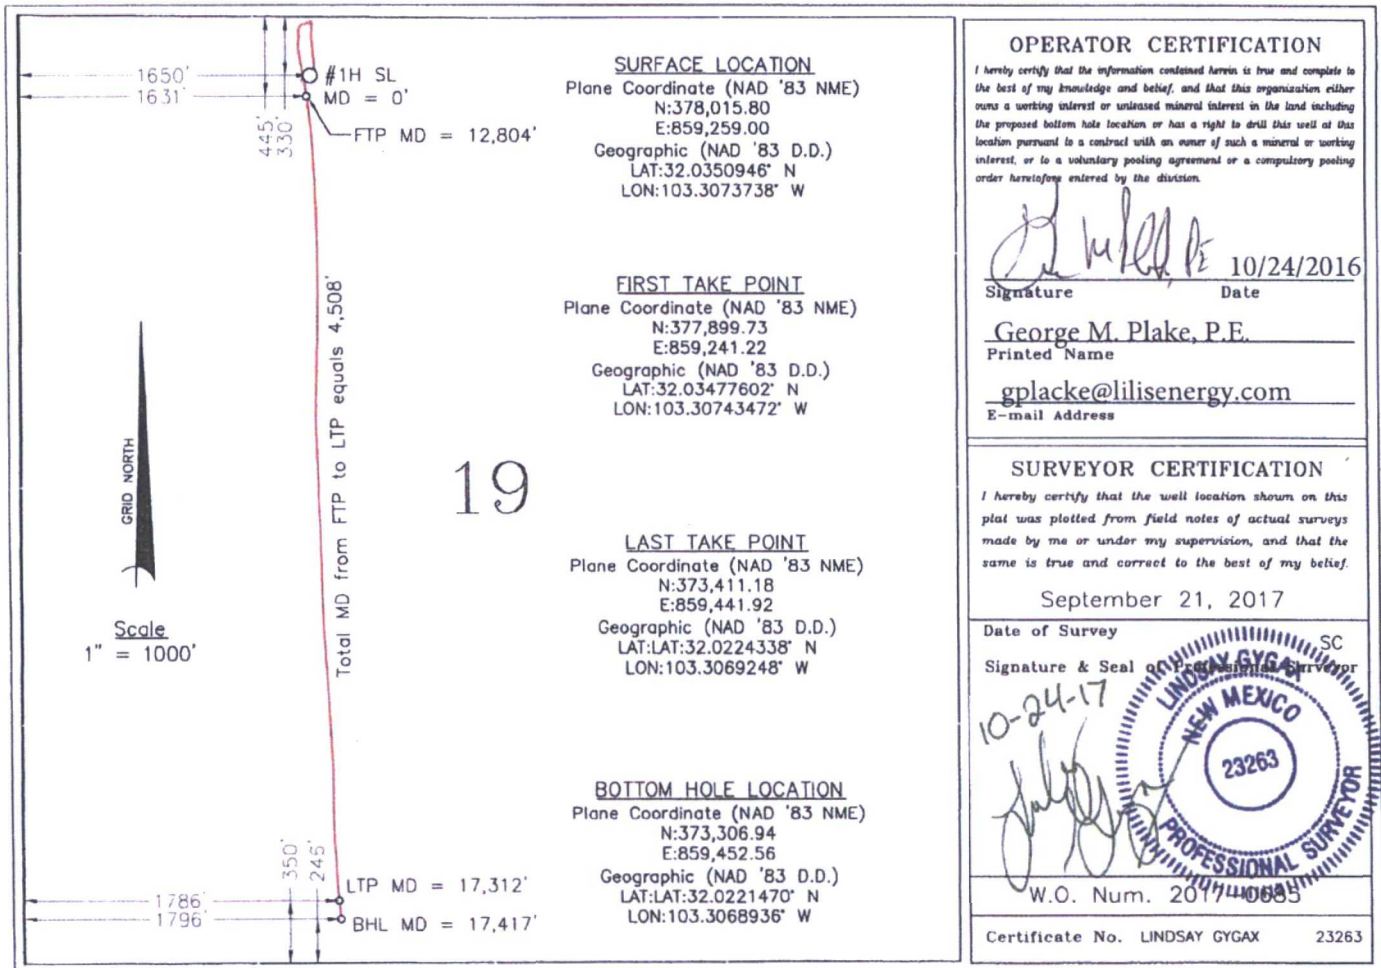 1650'
1631'
445'
330'
#1H SL
MD = 0'
FTP MD = 12,804'
Total MD from FTP to LTP equals 4,508'
GRID NORTH
Scale
1" = 1000'
19
350'
246'
1786'
1796'
LTP MD = 17,312'
BHL MD = 17,417'
SURFACE LOCATION
Plane Coordinate (NAD '83 NME)
N:378,015.80
E:859,259.00
Geographic (NAD '83 D.D.)
LAT:32.0350946° N
LON:103.3073738° W
FIRST TAKE POINT
Plane Coordinate (NAD '83 NME)
N:377,899.73
E:859,241.22
Geographic (NAD '83 D.D.)
LAT:32.03477602° N
LON:103.30743472° W
LAST TAKE POINT
Plane Coordinate (NAD '83 NME)
N:373,411.18
E:859,441.92
Geographic (NAD '83 D.D.)
LAT:LAT:32.0224338° N
LON:103.3069248° W
BOTTOM HOLE LOCATION
Plane Coordinate (NAD '83 NME)
N:373,306.94
E:859,452.56
Geographic (NAD '83 D.D.)
LAT:LAT:32.0221470° N
LON:103.3068936° W
OPERATOR CERTIFICATION
I hereby certify that the information contained herein is true and complete to
the best of my knowledge and belief, and that this organization either
owns a working interest or unleased mineral interest in the land including
the proposed bottom hole location or has a right to drill this well at this
location pursuant to a contract with an owner of such a mineral or working
interest, or to a voluntary pooling agreement or a compulsory pooling
order heretofore entered by the division.
PE 10/24/2016
Signature Date
George M. Plake, P.E.
Printed Name
gplacke@lilisenergy.com
E-mail Address
SURVEYOR CERTIFICATION
I hereby certify that the well location shown on this
plat was plotted from field notes of actual surveys
made by me or under my supervision, and that the
same is true and correct to the best of my belief.
September 21, 2017
Date of Survey
SC
Signature & Seal of Professional Surveyor
10-24-17
LINDSAY GYGAX
NEW MEXICO
23263
PROFESSIONAL SURVEYOR
W.O. Num. 2017-0685
Certificate No. LINDSAY GYGAX 23263